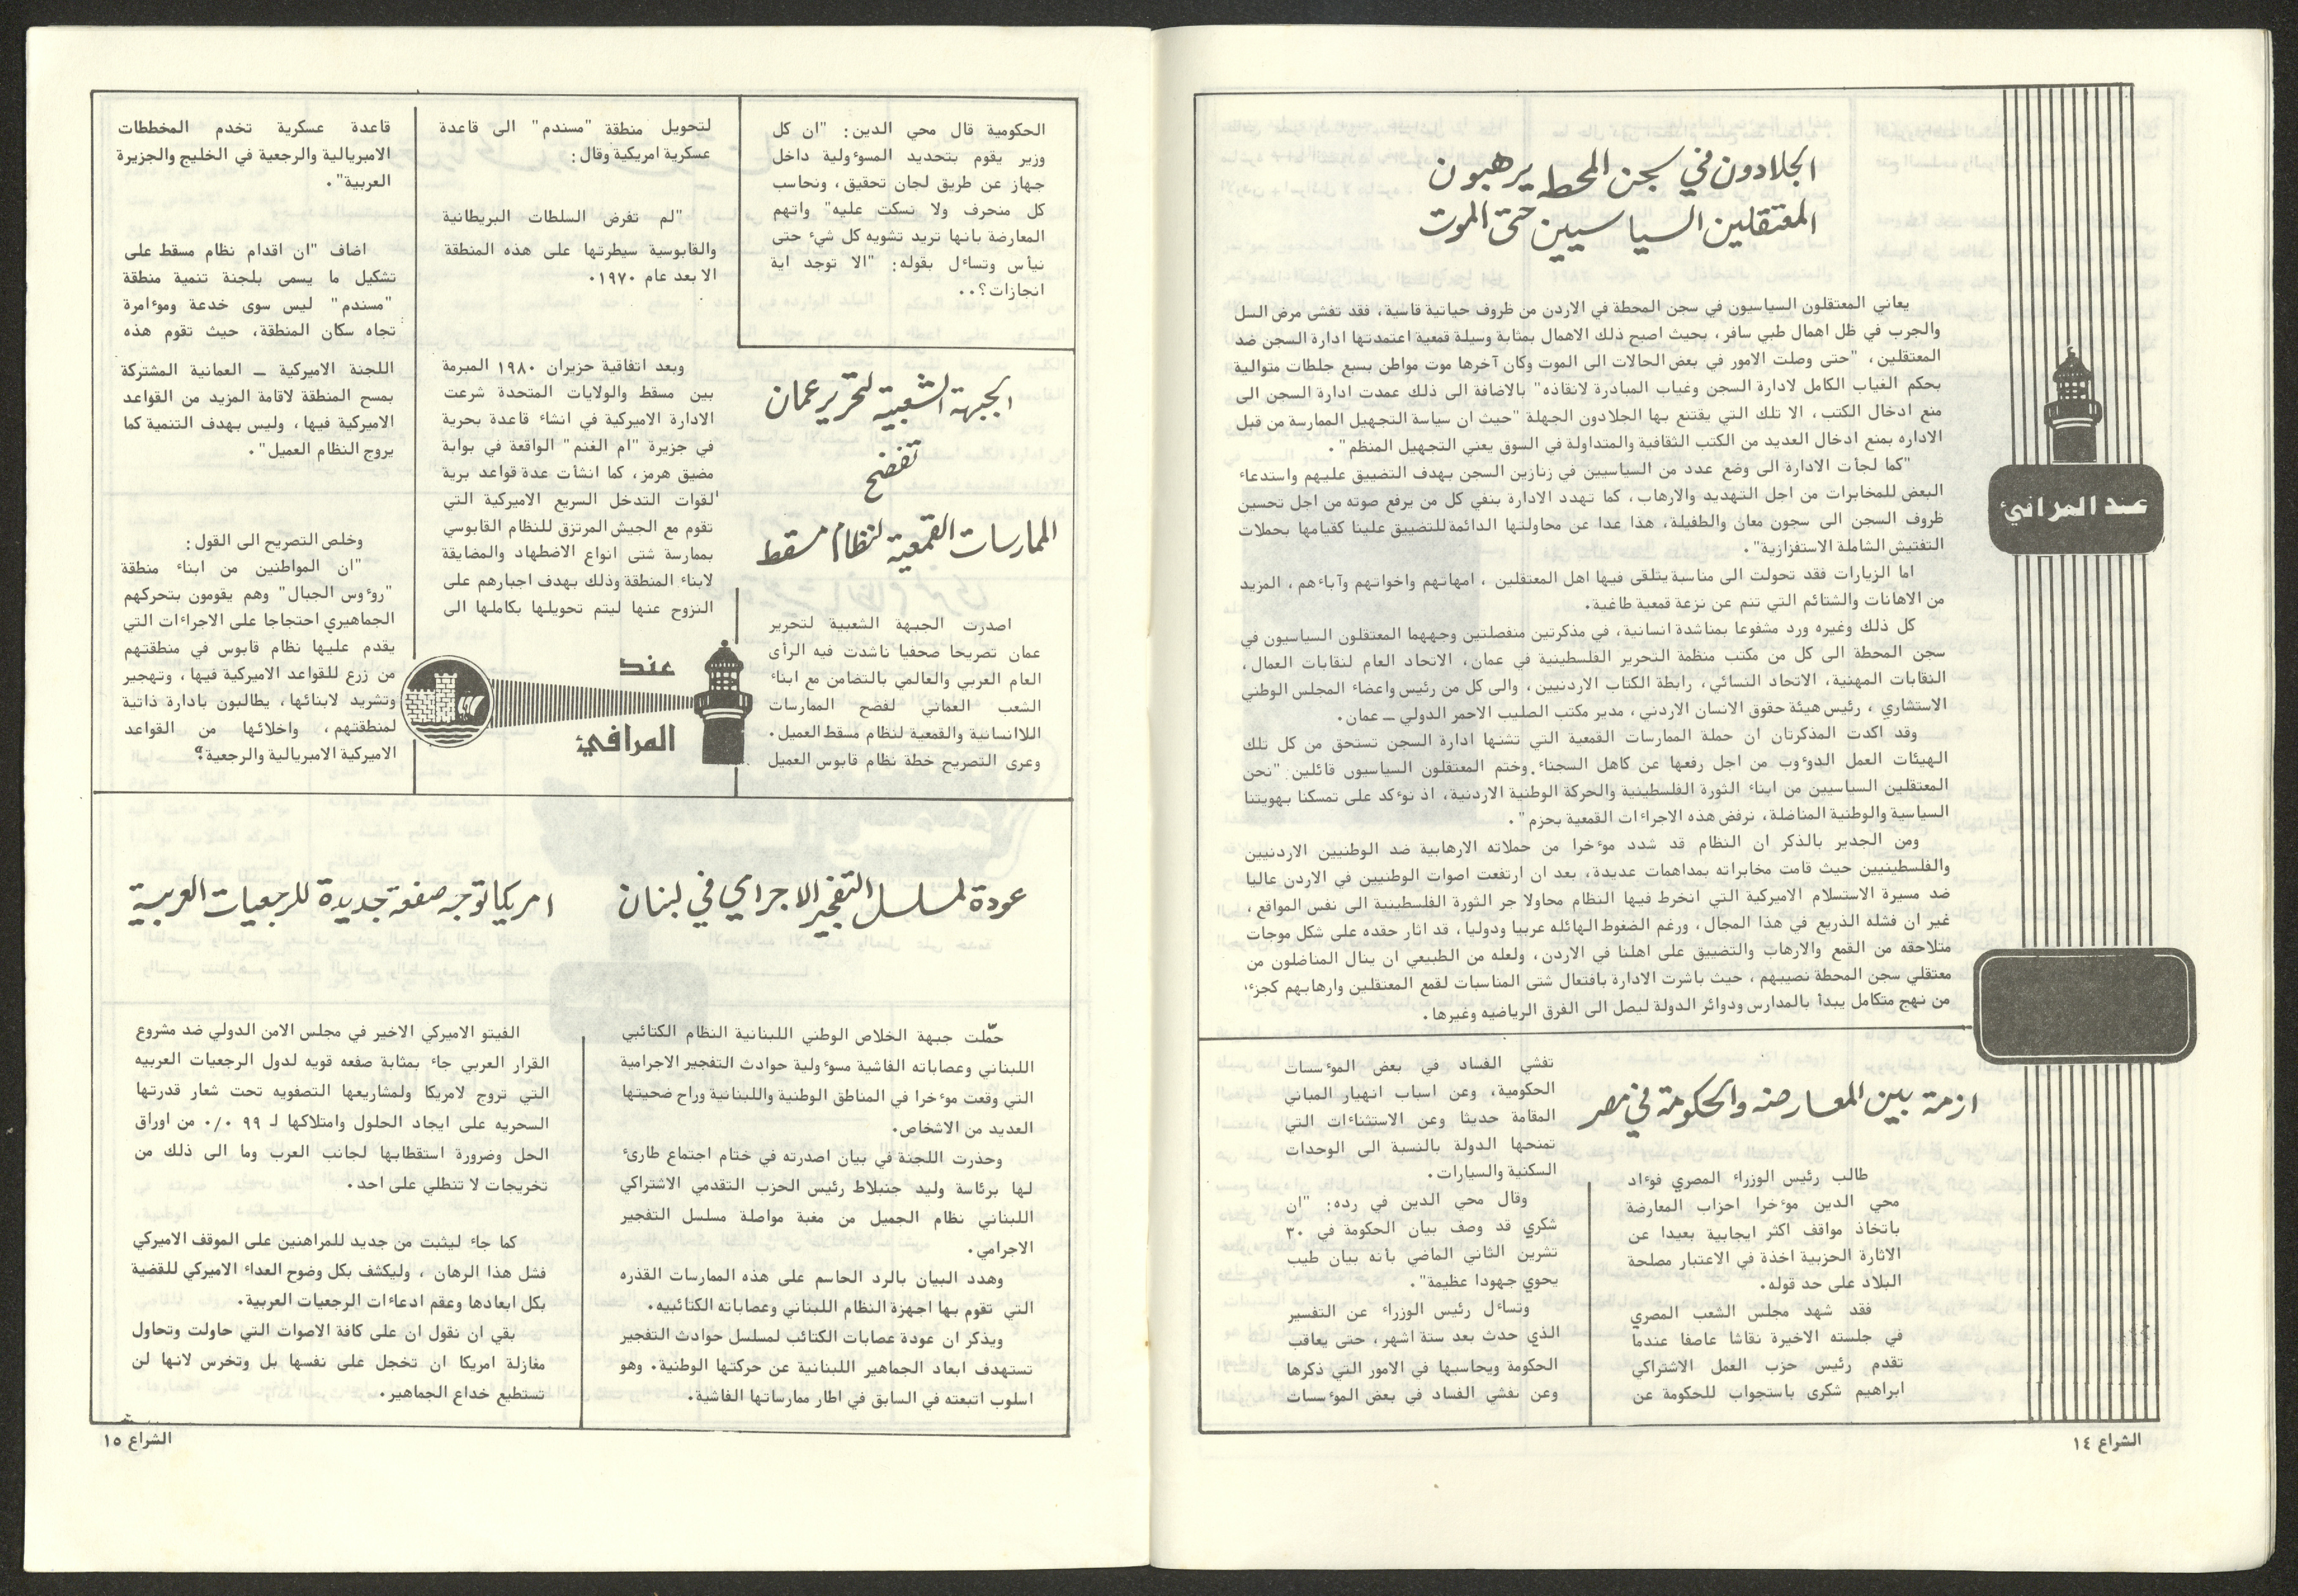 الجلادون في سجن المحطه يرهبون
المعتقلين السياسيين حتى الموت
يعاني المعتقلون السياسيون في سجن المحطة في الاردن من ظروف حياتية قاسية، فقد تفشى مرض السل
والجرب في ظل اهمال طبي سافر، بحيث اصبح ذلك الاهمال بمثابة وسيلة قمعية اعتمدتها ادارة السجن ضد
المعتقلين، "حتى وصلت الامور في بعض الحالات الى الموت وكان آخرها موت مواطن بسبع جلطات متوالية
بحكم الغياب الكامل لادارة السجن وغياب المبادرة لانقاذه" بالاضافة الى ذلك عمدت ادارة السجن الى
منع ادخال الكتب، الا تلك التي يقتنع بها الجلادون الجهلة "حيث ان سياسة التجهيل الممارسة من قبل
الاداره بمنع ادخال العديد من الكتب الثقافية والمتداولة في السوق يعني التجهيل المنظم".
"كما لجأت الادارة الى وضع عدد من السياسيين في زنازين السجن بهدف التضييق عليهم واستدعاء
البعض للمخابرات من اجل التهديد والارهاب، كما تهدد الادارة بنفي كل من يرفع صوته من اجل تحسين
ظروف السجن الى سجون معان والطفيلة، هذا عدا عن محاولتها الدائمة للتضييق علينا كقيامها بحملات
التفتيش الشاملة الاستفزازية".
اما الزيارات فقد تحولت الى مناسبة يتلقى فيها اهل المعتقلين، امهاتهم واخواتهم وآباءهم، المزيد
من الاهانات والشتائم التي تنم عن نزعة قمعية طاغية.
كل ذلك وغيره ورد مشفوعا بمناشدة انسانية، في مذكرتين منفصلتين وجههما المعتقلون السياسيون في
سجن المحطة الى كل من مكتب منظمة التحرير الفلسطينية في عمان، الاتحاد العام لنقابات العمال،
النقابات المهنية، الاتحاد النسائي، رابطة الكتاب الاردنيين، والى كل من رئيس واعضاء المجلس الوطني
الاستشاري، رئيس هيئة حقوق الانسان الاردني، مدير مكتب الصليب الاحمر الدولي ــ عمان.
وقد اكدت المذكرتان ان حملة الممارسات القمعية التي تشنها ادارة السجن تستحق من كل تلك
الهيئات العمل الدوءوب من اجل رفعها عن كاهل السجناء. وختم المعتقلون السياسيون قائلين: "نحن
المعتقلين السياسيين من ابناء الثورة الفلسطينية والحركة الوطنية الاردنية، اذ نوءكد على تمسكنا بهويتنا
السياسية والوطنية المناضلة، نرفض هذه الاجراءات القمعية بحزم".
ومن الجدير بالذكر ان النظام قد شدد موءخرا من حملاته الارهابية ضد الوطنيين الاردنيين
والفلسطينيين حيث قامت مخابراته بمداهمات عديدة، بعد ان ارتفعت اصوات الوطنيين في الاردن عاليا
ضد مسيرة الاستسلام الاميركية التي انخرط فيها النظام محاولا جر الثورة الفلسطينية الى نفس المواقع،
غير ان فشله الذريع في هذا المجال، ورغم الضغوط الهائله عربيا ودوليا، قد اثار حقده على شكل موجات
متلاحقه من القمع والارهاب والتضييق على اهلنا في الاردن، ولعله من الطبيعي ان ينال المناضلون من
معتقلي سجن المحطة نصيبهم، حيث باشرت الادارة بافتعال شتى المناسبات لقمع المعتقلين وارهابهم كجزء،
من نهج متكامل يبدأ بالمدارس ودوائر الدولة ليصل الى الفرق الرياضيه وغيرها.
عند المرافئ
ازمة بين المعارضه والحكومة في مصر
طالب رئيس الوزراء المصري فوءاد
محي الدين موءخرا احزاب المعارضة
باتخاذ مواقف اكثر ايجابية بعيدا عن
الاثارة الحزبية اخذة في الاعتبار مصلحة
البلاد على حد قوله.
فقد شهد مجلس الشعب المصري
في جلسته الاخيرة نقاشا عاصفا عندما
تقدم رئيس حزب العمل الاشتراكي
ابراهيم شكري باستجواب للحكومة عن
تفشي الفساد في بعض الموءسسات
الحكومية، وعن اسباب انهيار المباني
المقامة حديثا وعن الاستثناءات التي
تمنحها الدولة بالنسبة الى الوحدات
السكنية والسيارات.
وقال محي الدين في رده: "ان
شكري قد وصف بيان الحكومة في ٣٠
تشرين الثاني الماضي بأنه بيان طيب
يحوي جهودا عظيمة".
وتساءل رئيس الوزراء عن التفسير
الذي حدث بعد ستة اشهر، حتى يعاقب
الحكومة ويحاسبها في الامور التي ذكرها
وعن تفشي الفساد في بعض الموءسسات
الشراع ١٤
الحكومية قال محي الدين: "ان كل
وزير يقوم بتحديد المسوءولية داخل
جهاز عن طريق لجان تحقيق، ونحاسب
كل منحرف ولا نسكت عليه" واتهم
المعارضة بانها تريد تشويه كل شيء حتى
نيأس وتساءل بقوله: "الا توجد اية
انجازات؟..
الجبهة الشعبية لتحرير عمان
تفضح
الممارسات القمعية لنظام مسقط
اصدرت الجبهة الشعبية لتحرير
عمان تصريحا صحفيا ناشدت فيه الرأى
العام العربي والعالمي بالتضامن مع ابناء
الشعب العماني لفضح الممارسات
اللاانسانية والقمعية لنظام مسقط العميل.
وعرى التصريح خطة نظام قابوس العميل
لتحويل منطقة "مسندم" الى قاعدة
عسكرية امريكية وقال:
"لم تفرض السلطات البريطانية
والقابوسية سيطرتها على هذه المنطقة
الا بعد عام ١٩٧٠.
وبعد اتفاقية حزيران ١٩٨٠ المبرمة
بين مسقط والولايات المتحدة شرعت
الادارة الاميركية في انشاء قاعدة بحرية
في جزيرة "ام الغنم" الواقعة في بوابة
مضيق هرمز، كما انشأت عدة قواعد برية
لقوات التدخل السريع الاميركية التي
تقوم مع الجيش المرتزق للنظام القابوسي
بممارسة شتى انواع الاضطهاد والمضايقة
لابناء المنطقة وذلك بهدف اجبارهم على
النزوح عنها ليتم تحويلها بكاملها الى
عند
المرافئ
قاعدة عسكرية تخدم المخططات
الامبريالية والرجعية في الخليج والجزيرة
العربية".
اضاف "ان اقدام نظام مسقط على
تشكيل ما يسمى بلجنة تنمية منطقة
"مسندم" ليس سوى خدعة وموءامرة
تجاه سكان المنطقة، حيث تقوم هذه
اللجنة الاميركية ــ العمانية المشتركة
بمسح المنطقة لاقامة المزيد من القواعد
الاميركية فيها، وليس بهدف التنمية كما
يروج النظام العميل".
وخلص التصريح الى القول:
"ان المواطنين من ابناء منطقة
"روءوس الجبال" وهم يقومون بتحركهم
الجماهيري احتجاجا على الاجراءات التي
يقدم عليها نظام قابوس في منطقتهم
من زرع للقواعد الاميركية فيها، وتهجير
وتشريد لابنائها، يطالبون بادارة ذاتية
لمنطقتهم، واخلائها من القواعد
الاميركية الامبريالية والرجعية".
عودة لمسلسل التفجير الاجرامي في لبنان
حمّلت جبهة الخلاص الوطني اللبنانية النظام الكتائبي
اللبناني وعصاباته الفاشية مسوءولية حوادث التفجير الاجرامية
التي وقعت موءخرا في المناطق الوطنية واللبنانية وراح ضحيتها
العديد من الاشخاص.
وحذرت اللجنة في بيان اصدرته في ختام اجتماع طارئ
لها برئاسة وليد جنبلاط رئيس الحزب التقدمي الاشتراكي
اللبناني نظام الجميل من مغبة مواصلة مسلسل التفجير
الاجرامي.
وهدد البيان بالرد الحاسم على هذه الممارسات القذره
التي تقوم بها اجهزة النظام اللبناني وعصاباته الكتائبيه.
ويذكر ان عودة عصابات الكتائب لمسلسل حوادث التفجير
تستهدف ابعاد الجماهير اللبنانية عن حركتها الوطنية. وهو
اسلوب اتبعته في السابق في اطار ممارساتها الفاشية.
امريكا توجه صفعة جديدة للرجعيات العربية
الفيتو الاميركي الاخير في مجلس الامن الدولي ضد مشروع
القرار العربي جاء بمثابة صفعه قويه لدول الرجعيات العربيه
التي تروج لامريكا ولمشاريعها التصفويه تحت شعار قدرتها
السحريه على ايجاد الحلول وامتلاكها لـ ٩٩ ٠/٠ من اوراق
الحل وضرورة استقطابها لجانب العرب وما الى ذلك من
تخريجات لا تنطلي على احد.
كما جاء ليثبت من جديد للمراهنين على الموقف الاميركي
فشل هذا الرهان، وليكشف بكل وضوح العداء الاميركي للقضية
بكل ابعادها وعقم ادعاءات الرجعيات العربية.
بقي ان نقول ان على كافة الاصوات التي حاولت وتحاول
مغازلة امريكا ان تخجل على نفسها بل وتخرس لانها لن
تستطيع خداع الجماهير.
الشراع ١٥